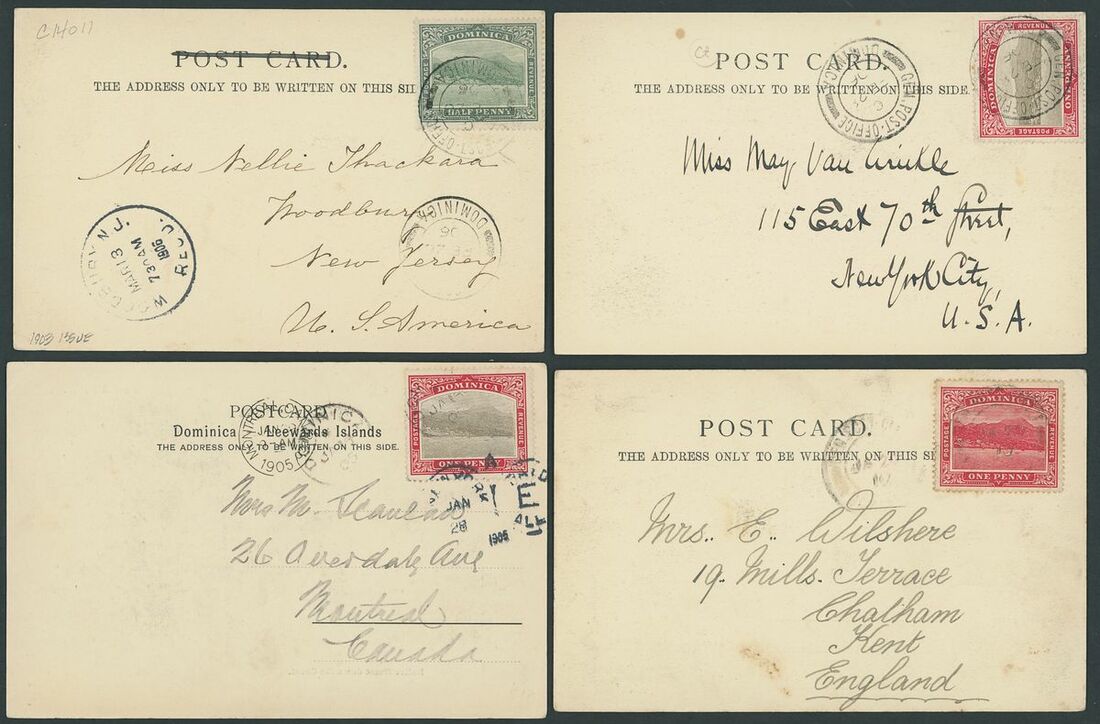 C14011
POST CARD.
THE ADDRESS ONLY TO BE WRITTEN ON THIS SI
DOMINICA
POSTAGE
REVENUE
HALF PENNY
DOMINICA
Miss Nellie Thackara
Woodbury
New Jersey
U. S. America
DOMINICA
06
WOODBURY N.J.
MAR 13
7 30 AM
1906
REC'D.
1903 ISSUE
POST CARD.
THE ADDRESS ONLY TO BE WRITTEN ON THIS SIDE.
GEN. POST-OFFICE
DOMINICA
DOMINICA
POSTAGE
REVENUE
ONE PENNY
GEN. POST-OFF
Miss May Van Winkle
115 East 70th Street,
New York City,
U. S. A.
POSTCARD
Dominica Leewards Islands
THE ADDRESS ONLY TO BE WRITTEN ON THIS SIDE.
MONTREAL
JAN
AM
1905
DOMINICA
DOMINICA
POSTAGE
REVENUE
ONE PENNY
JAN
28
1905
Mrs M.
26
Montreal
Canada
POST CARD.
THE ADDRESS ONLY TO BE WRITTEN ON THIS SI
DOMINICA
POSTAGE
REVENUE
ONE PENNY
Mrs. E. Wilshere
19. Mills. Terrace
Chatham
Kent
England